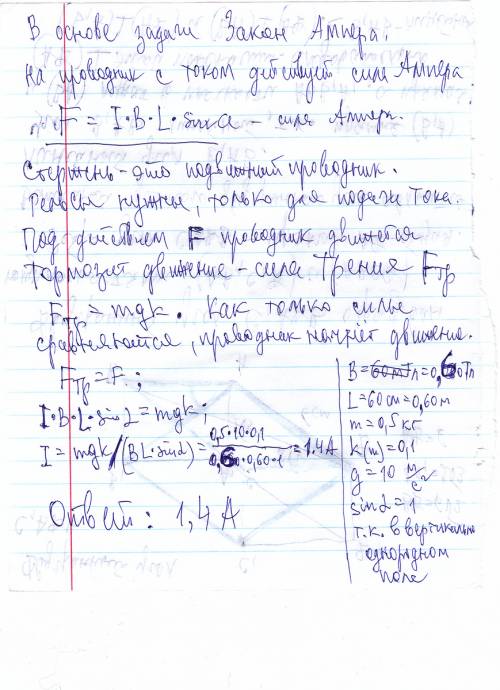 В основе задачи Закон Ампера.
На проводник с током действует сила Ампера
F = I·B·L·sinα - сила Ампера.
Стержень - это подвижный проводник.
Рельсы нужны, только для подачи тока.
Под действием F проводник движется
Тормозит движение - сила трения Fтр
Fтр = mgk. Как только силы
сравняются, проводник начнёт движение.
Fтр = F;
I·B·L·sinα = mgk;
I = mgk/(BL·sinα) = 0,5·10·0,1 / 0,60·0,60·1 = 1.4A
Ответ: 1,4 A
B = 60мТл = 0,60Тл
L = 60см = 0,60м
m = 0,5 кг
k(m) = 0,1
g = 10 м/с²
sinα = 1
т.к. в вертикально
однородном
поле